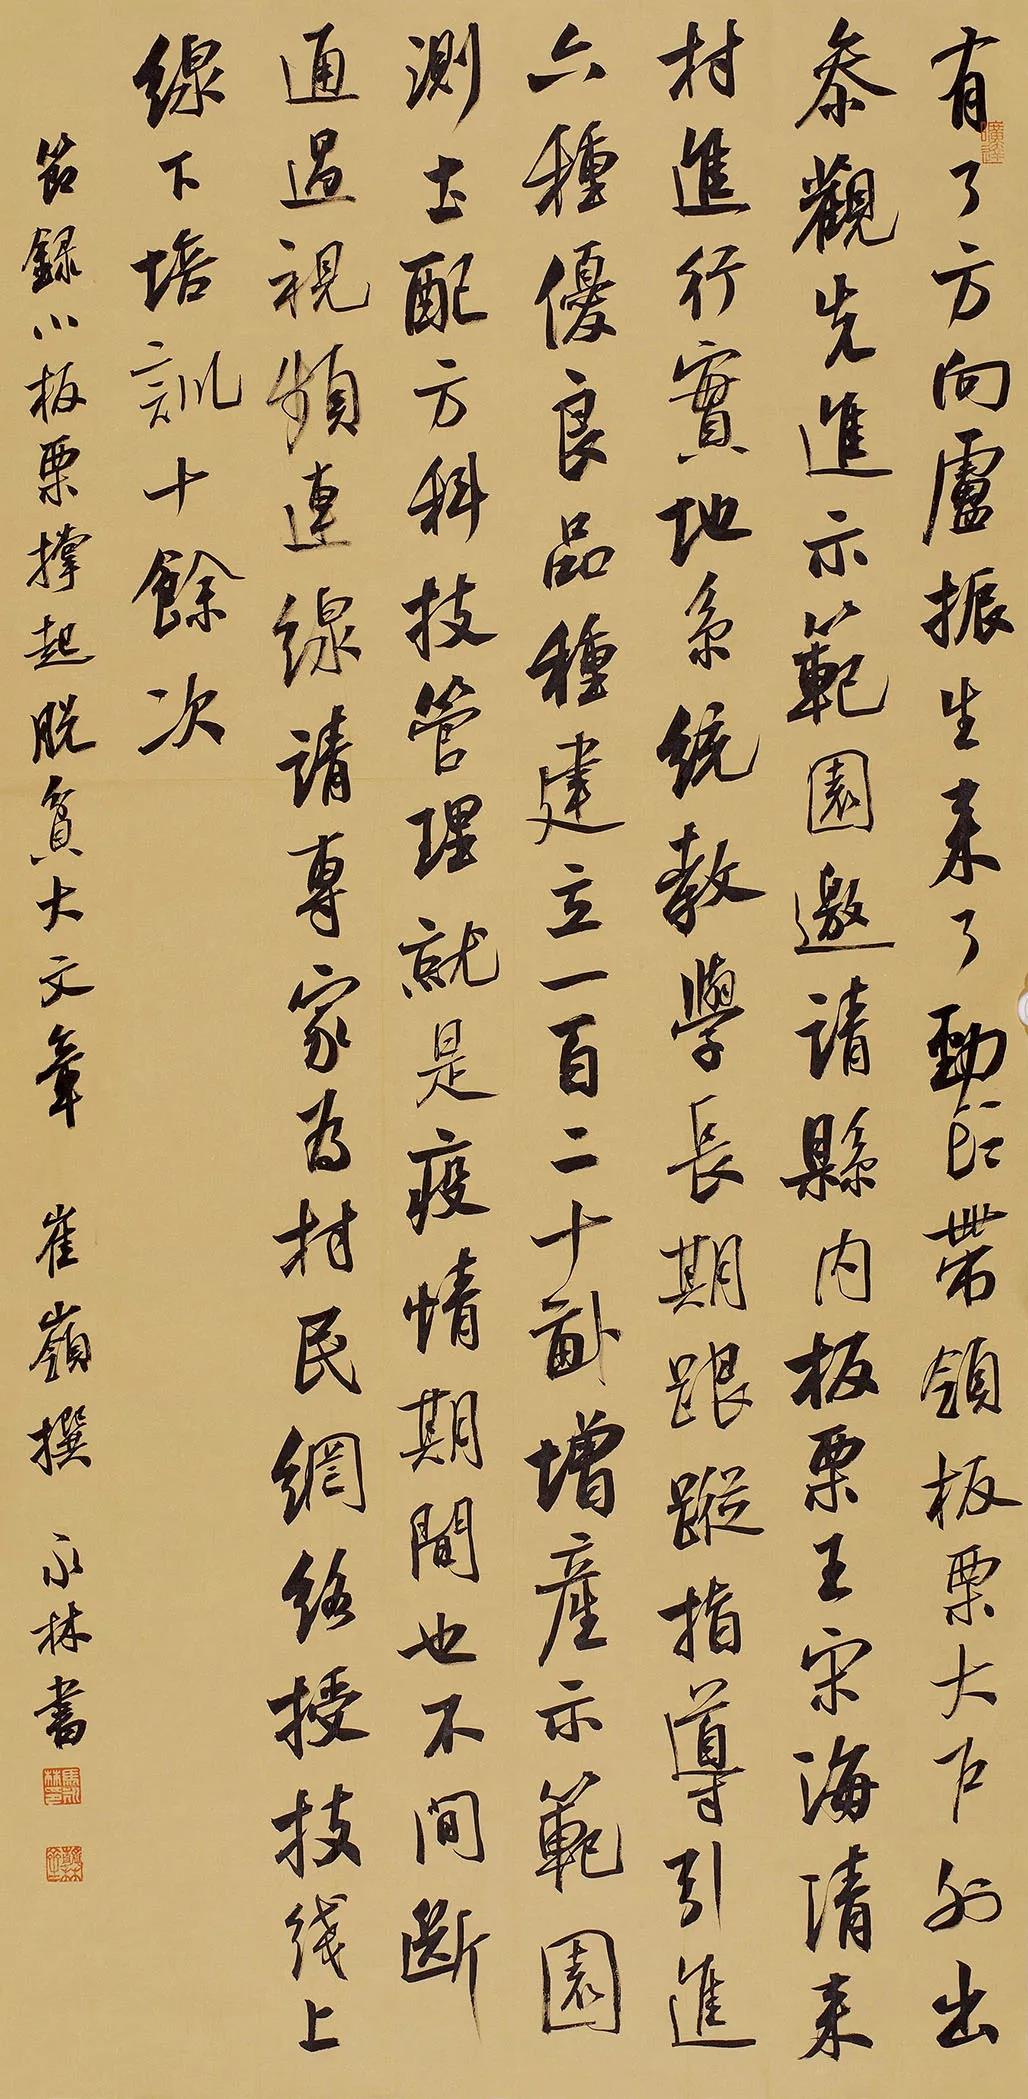 有了方向盧振生来了勁頭帶領板栗大户外出
叅觀先進示範園邀請縣内板栗王宋海清来
村進行實地系統教學長期跟蹤指導引進
六種優良品種建立一百二十畝增産示範園
測土配方科技管理就是疫情期間也不间斷
通過視頻連線請專家為村民網络授技线上
線下培訓十餘次
節録小板栗撑起脱貧大文章 崔嶺撰 永林書